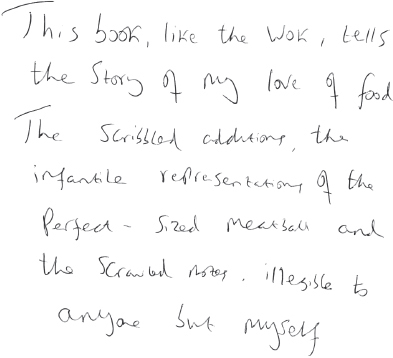 This book, like the Wok, tells
the Story of my love of food
The scribbled additions, the
infantile representations of the
Perfect - Sized meatball and
the scrawled notes, illegible to
anyone but myself